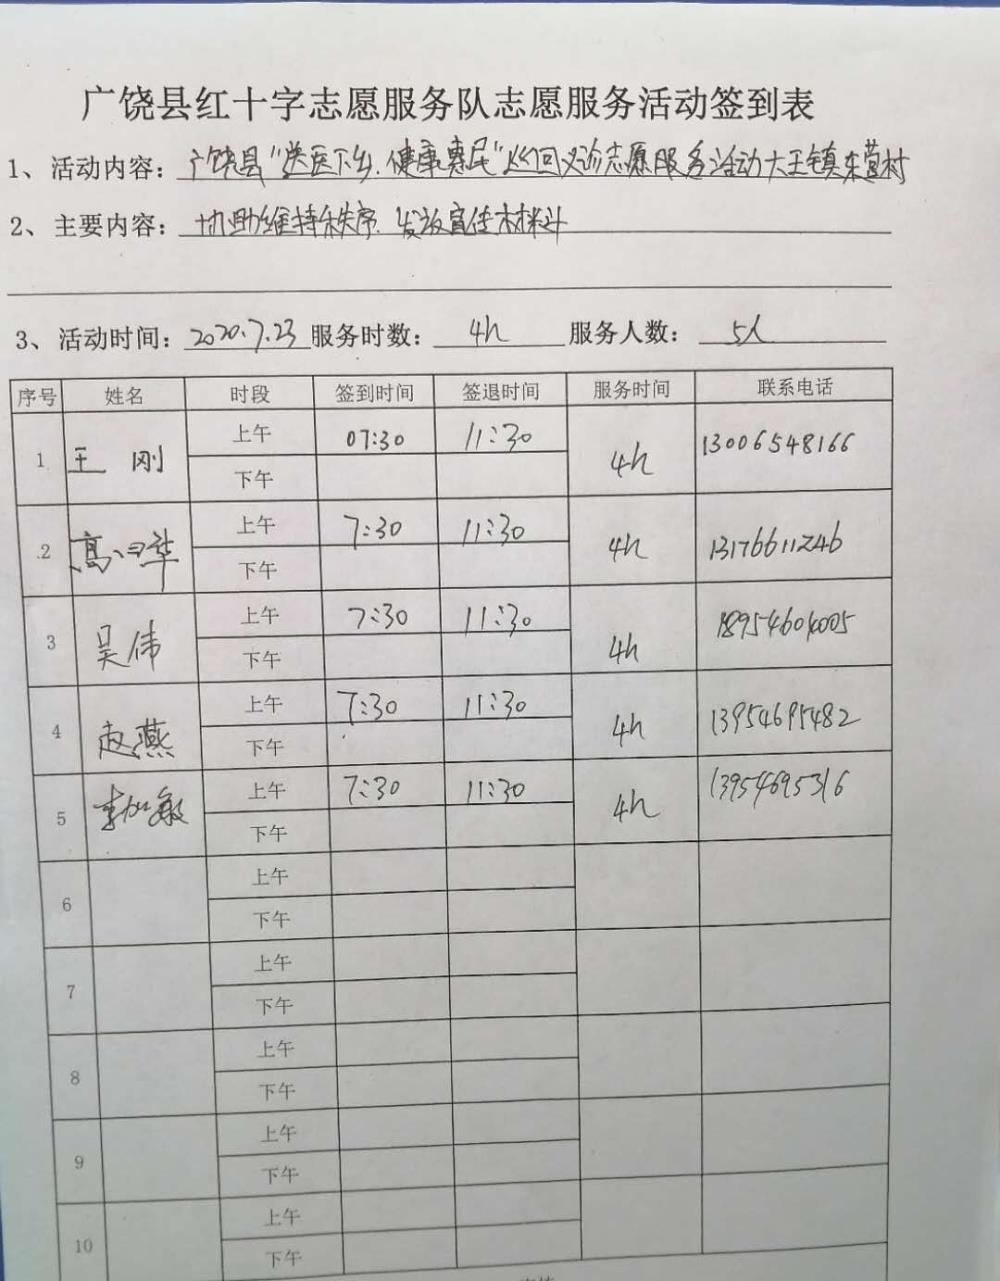 广饶县红十字志愿服务队志愿服务活动签到表
1、活动内容：广饶县“送医下乡.健康惠民”巡回义诊志愿服务活动大王镇东营村
2、主要内容：协助维持秩序.发放宣传材料
3、活动时间：2020.7.23 服务时数：4h 服务人数：5人
序号 姓名 时段 签到时间 签退时间 服务时间 联系电话
1 王刚 上午 07:30 11:30 4h 13006548166
下午
2 高 华 上午 7:30 11:30 4h 13176611246
下午
3 吴伟 上午 7:30 11:30 4h 18954604005
下午
4 赵燕 上午 7:30 11:30 4h 13954695482
下午
5 李加敏 上午 7:30 11:30 4h 13954695316
下午
6 上午
下午
7 上午
下午
8 上午
下午
9 上午
下午
10 上午
下午